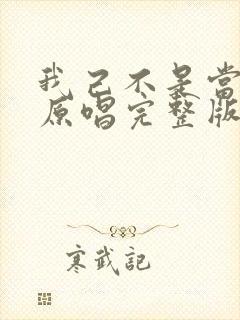 我已不是当
原唱完整版
寒武記